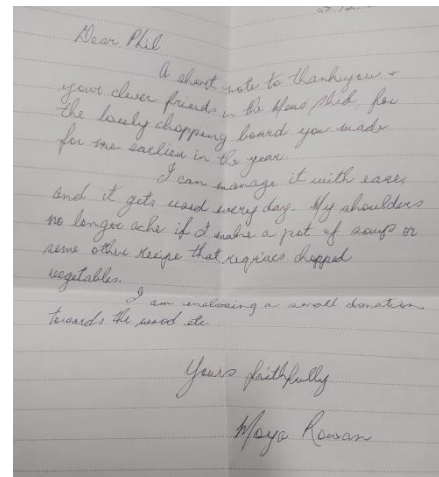 Dear Phil
A short note to thankyou +
your clever friends in the Mens Shed, for
the lovely chopping board you made
for me earlier in the year.
I can manage it with ease,
and it gets used every day. My shoulders
no longer ache if I make a pot of soup or
some other recipe that requires chopped
vegetables.
I am enclosing a small donation
towards the wood etc.
Yours faithfully
Rowan